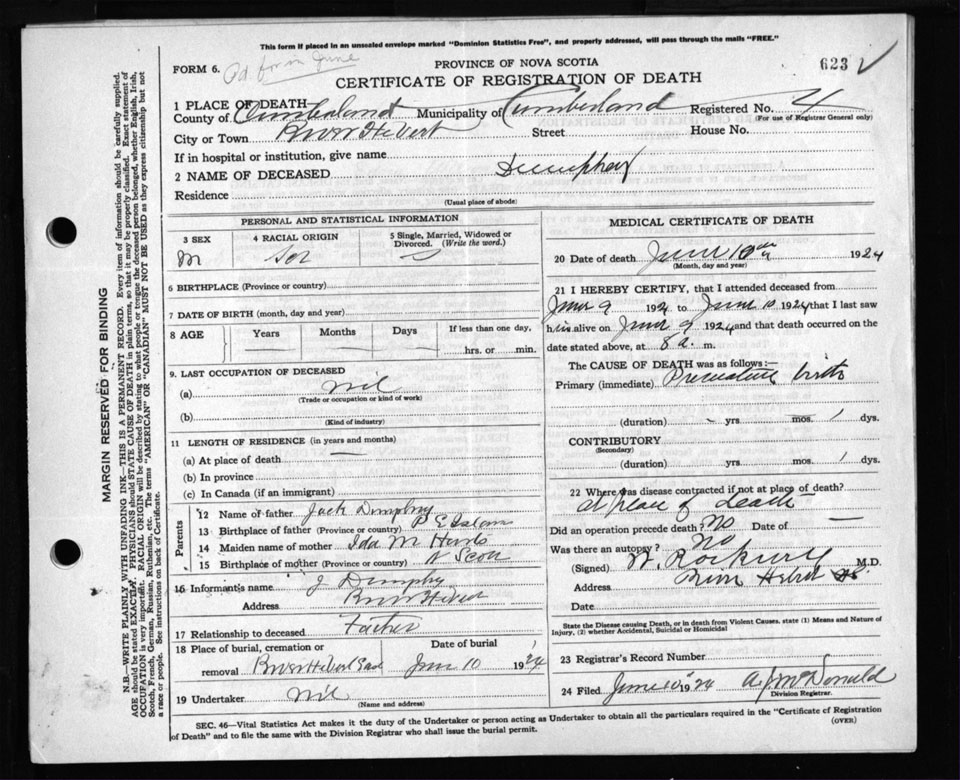 This form if placed in an unsealed envelope marked "Dominion Statistics Free", and properly addressed, will pass through the mails "FREE."
FORM 6. Pd. for in June
PROVINCE OF NOVA SCOTIA
623
CERTIFICATE OF REGISTRATION OF DEATH
1 PLACE OF DEATH
County of Cumberland Municipality of Cumberland Registered No. 4
(For use of Registrar General only)
City or Town River Hebert Street House No.
If in hospital or institution, give name
2 NAME OF DECEASED
Residence
(Usual place of abode)
PERSONAL AND STATISTICAL INFORMATION
3 SEX 4 RACIAL ORIGIN 5 Single, Married, Widowed or Divorced. (Write the word.)
M S
6 BIRTHPLACE (Province or country)
7 DATE OF BIRTH (month, day and year)
8 AGE Years Months Days If less than one day,
hrs. or min.
9. LAST OCCUPATION OF DECEASED
(a) nil
(Trade or occupation or kind of work)
(b)
(Kind of industry)
11 LENGTH OF RESIDENCE (in years and months)
(a) At place of death —
(b) In province
(c) In Canada (if an immigrant)
Parents
12 Name of father Jack Dumphy
13 Birthplace of father (Province or country) P E Island
14 Maiden name of mother Ida M
15 Birthplace of mother (Province or country) N Scott
16 Informant's name J Dumphy
Address River Hebert
17 Relationship to deceased Father
18 Place of burial, cremation or removal River Hebert East
Date of burial June 10 1924
19 Undertaker nil
(Name and address)
MEDICAL CERTIFICATE OF DEATH
20 Date of death June 10th 1924
(Month, day and year)
21 I HEREBY CERTIFY, that I attended deceased from
June 9 1924 to June 10 1924 that I last saw
him alive on June 9 1924 and that death occurred on
date stated above, at 8 a. m.
The CAUSE OF DEATH was as follows:—
Primary (immediate) Premature birth
(duration) - yrs mos. 1 dys.
CONTRIBUTORY
(Secondary)
(duration) yrs mos. 1 dys.
22 Where was disease contracted if not at place of death?
at place of death
Did an operation precede death? No Date of —
Was there an autopsy? no
(Signed) M.D.
Address River Hebert
Date
State the Disease causing Death, or in death from Violent Causes, state (1) Means and Nature of
Injury, (2) whether Accidental, Suicidal or Homicidal
23 Registrar's Record Number
24 Filed June 10 1924 A J McDonald
Division Registrar.
SEC. 46—Vital Statistics Act makes it the duty of the Undertaker or person acting as Undertaker to obtain all the particulars required in the "Certificate of Registration
of Death" and to file the same with the Division Registrar who shall issue the burial permit.
(OVER)
MARGIN RESERVED FOR BINDING
N.B.—WRITE PLAINLY WITH UNFADING INK—THIS IS A PERMANENT RECORD. Every item of information should be carefully supplied.
AGE should be stated EXACTLY. PHYSICIANS should STATE CAUSE OF DEATH in plain terms, so that it may be properly classified. Exact statement of
OCCUPATION is very important. RACIAL ORIGIN will be described by stating to what people or tongue the deceased person belonged, whether English, Irish,
Scotch, French, German, Russian, Ruthenian, etc. The terms "AMERICAN" OR "CANADIAN" MUST NOT BE USED as they express citizenship but not
a race or people. See instructions on back of Certificate.